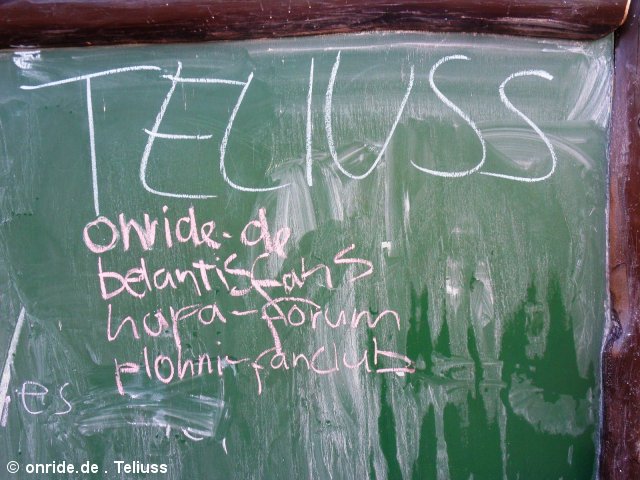 TELIUSS
onride.de
belantisfans
hapa-forum
plohni-fanclub
es
© onride.de . Teliuss